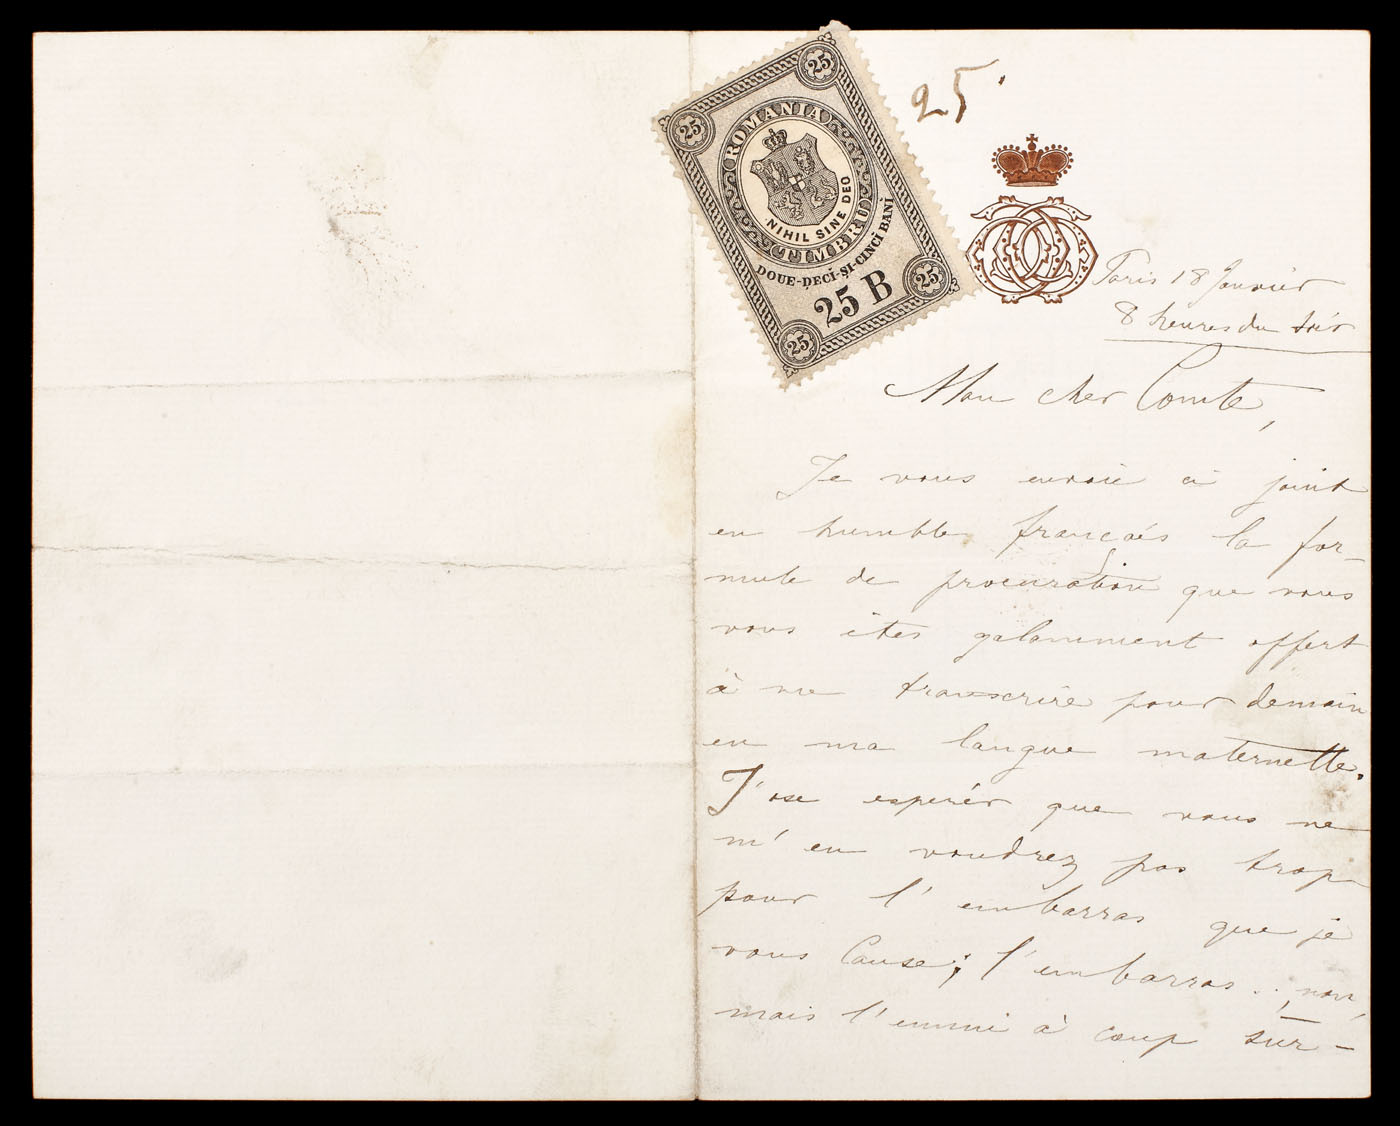 25
25
ROMANIA
NIHIL SINE DEO
TIMBRU
DOUE-DECĪ-ȘI-CINCĪ BANĪ
25 B
25
25
25
Paris 18 Janvier
8 heures du soir
Mon cher Comte,
Je vous envoie ci joint
en humble français la for-
mule de procuration que vous
vous êtes galamment offert
à me transcrire pour demain
en ma langue maternelle.
J'ose esperér que vous ne
m'en voudrez pas trop
pour l'embarras que je
vous Cause; l'embarras .. non,
mais l'ennui à coup sur –